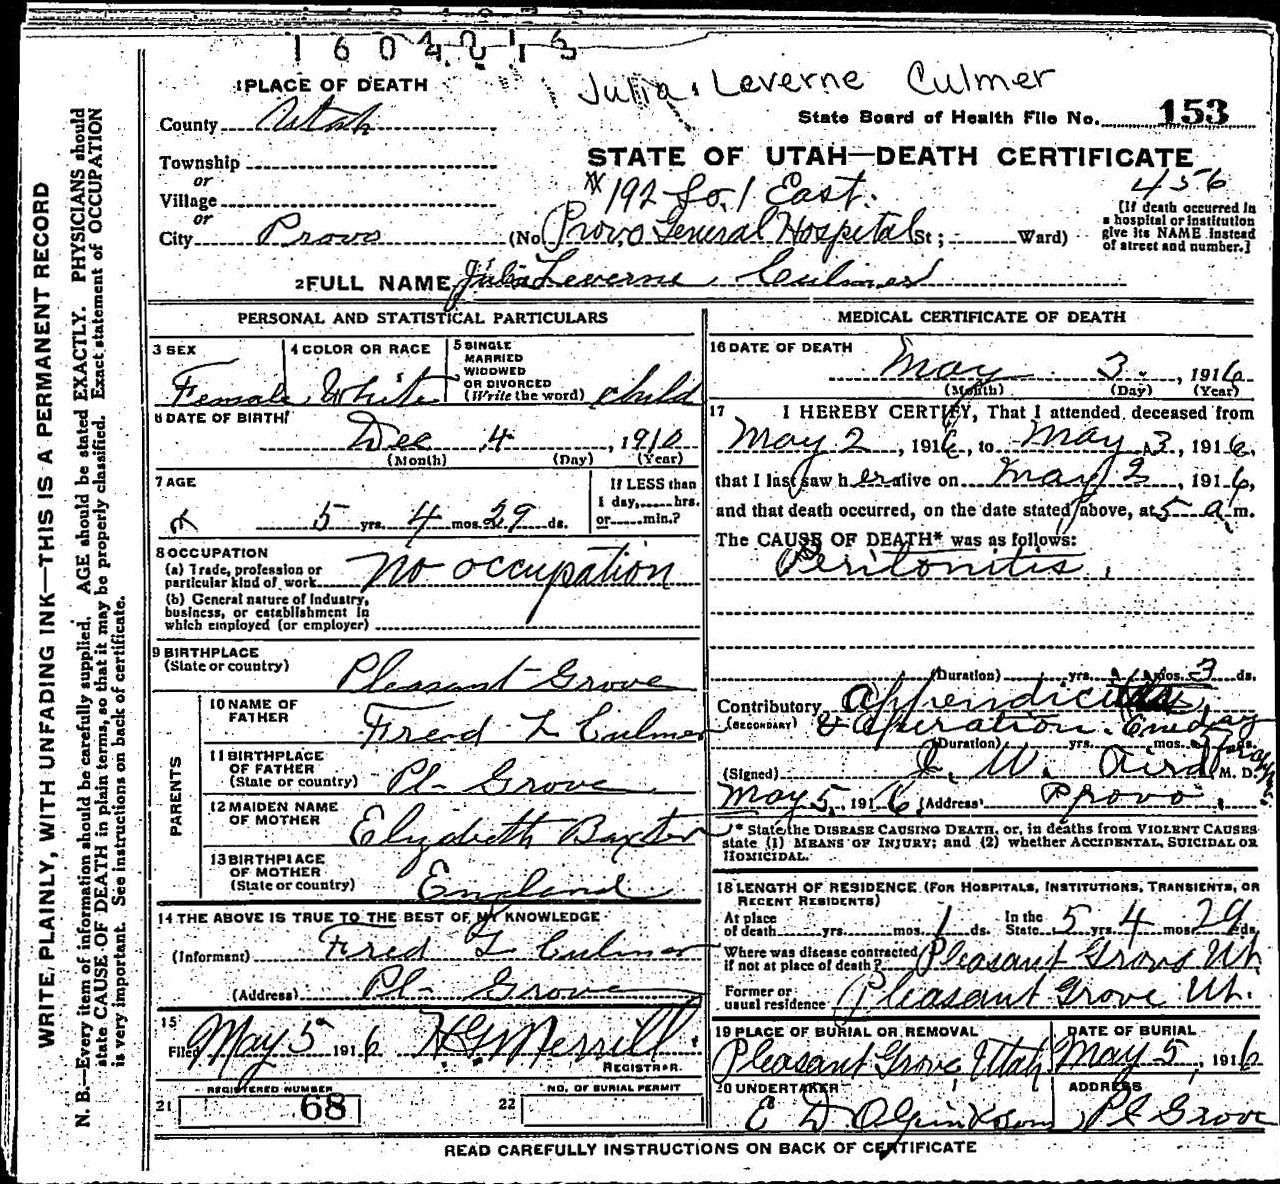 1604213
Julia Leverne Culmer
1 PLACE OF DEATH
State Board of Health File No. 153
County Utah
STATE OF UTAH—DEATH CERTIFICATE
Township
or
Village
or
192 So. 1 East.
456
[If death occurred in a hospital or institution give its NAME instead of street and number.]
City Provo (No. Provo General Hospital St; Ward)
2 FULL NAME Julia Leverne Culmer
PERSONAL AND STATISTICAL PARTICULARS
3 SEX Female
4 COLOR OR RACE White
5 SINGLE MARRIED WIDOWED OR DIVORCED (Write the word) child
6 DATE OF BIRTH
Dec 4, 1910
(Month) (Day) (Year)
7 AGE
5 yrs. 4 mos. 29 ds.
If LESS than 1 day, hrs. or min.?
8 OCCUPATION
(a) Trade, profession or particular kind of work No occupation
(b) General nature of industry, business, or establishment in which employed (or employer)
9 BIRTHPLACE
(State or country) Pleasant Grove
PARENTS
10 NAME OF FATHER Fred L Culmer
11 BIRTHPLACE OF FATHER (State or country) Pl- Grove
12 MAIDEN NAME OF MOTHER Elizabeth Baxter
13 BIRTHPLACE OF MOTHER (State or country) England
14 THE ABOVE IS TRUE TO THE BEST OF MY KNOWLEDGE
(Informant) Fred L Culmer
(Address) Pl- Grove
15
Filed May 5 1916 H G Merrill
REGISTRAR.
REGISTERED NUMBER
21 68
NO. OF BURIAL PERMIT
22
MEDICAL CERTIFICATE OF DEATH
16 DATE OF DEATH
May 3, 1916
(Month) (Day) (Year)
17 I HEREBY CERTIFY, That I attended deceased from
May 2, 1916, to May 3, 1916,
that I last saw her alive on May 2, 1916,
and that death occurred, on the date stated above, at 5 a m.
The CAUSE OF DEATH* was as follows:
Peritonitis
(Duration) yrs. mos. 3 ds.
Contributory Appendicitis
(SECONDARY) & Operation.
(Duration) yrs. mos. ds.
(Signed) J. W. Aird M. D.
May 5, 1916 (Address) Provo
* State the DISEASE CAUSING DEATH, or, in deaths from VIOLENT CAUSES
state (1) MEANS OF INJURY; and (2) whether ACCIDENTAL, SUICIDAL OR
HOMICIDAL.
18 LENGTH OF RESIDENCE (FOR HOSPITALS, INSTITUTIONS, TRANSIENTS, OR
RECENT RESIDENTS)
At place of death yrs. mos. 1 ds. In the State 5 4 mos 29 ds.
Where was disease contracted if not at place of death? Pleasant Grove Ut
Former or usual residence Pleasant Grove Ut.
19 PLACE OF BURIAL OR REMOVAL
Pleasant Grove Utah
DATE OF BURIAL
May 5, 1916
20 UNDERTAKER
E D Olpin
ADDRESS
Pl Grove
READ CAREFULLY INSTRUCTIONS ON BACK OF CERTIFICATE
WRITE PLAINLY, WITH UNFADING INK—THIS IS A PERMANENT RECORD
N. B.—Every item of information should be carefully supplied. AGE should be stated EXACTLY. PHYSICIANS should
state CAUSE OF DEATH in plain terms, so that it may be properly classified. Exact statement of OCCUPATION
is very important. See instructions on back of certificate.